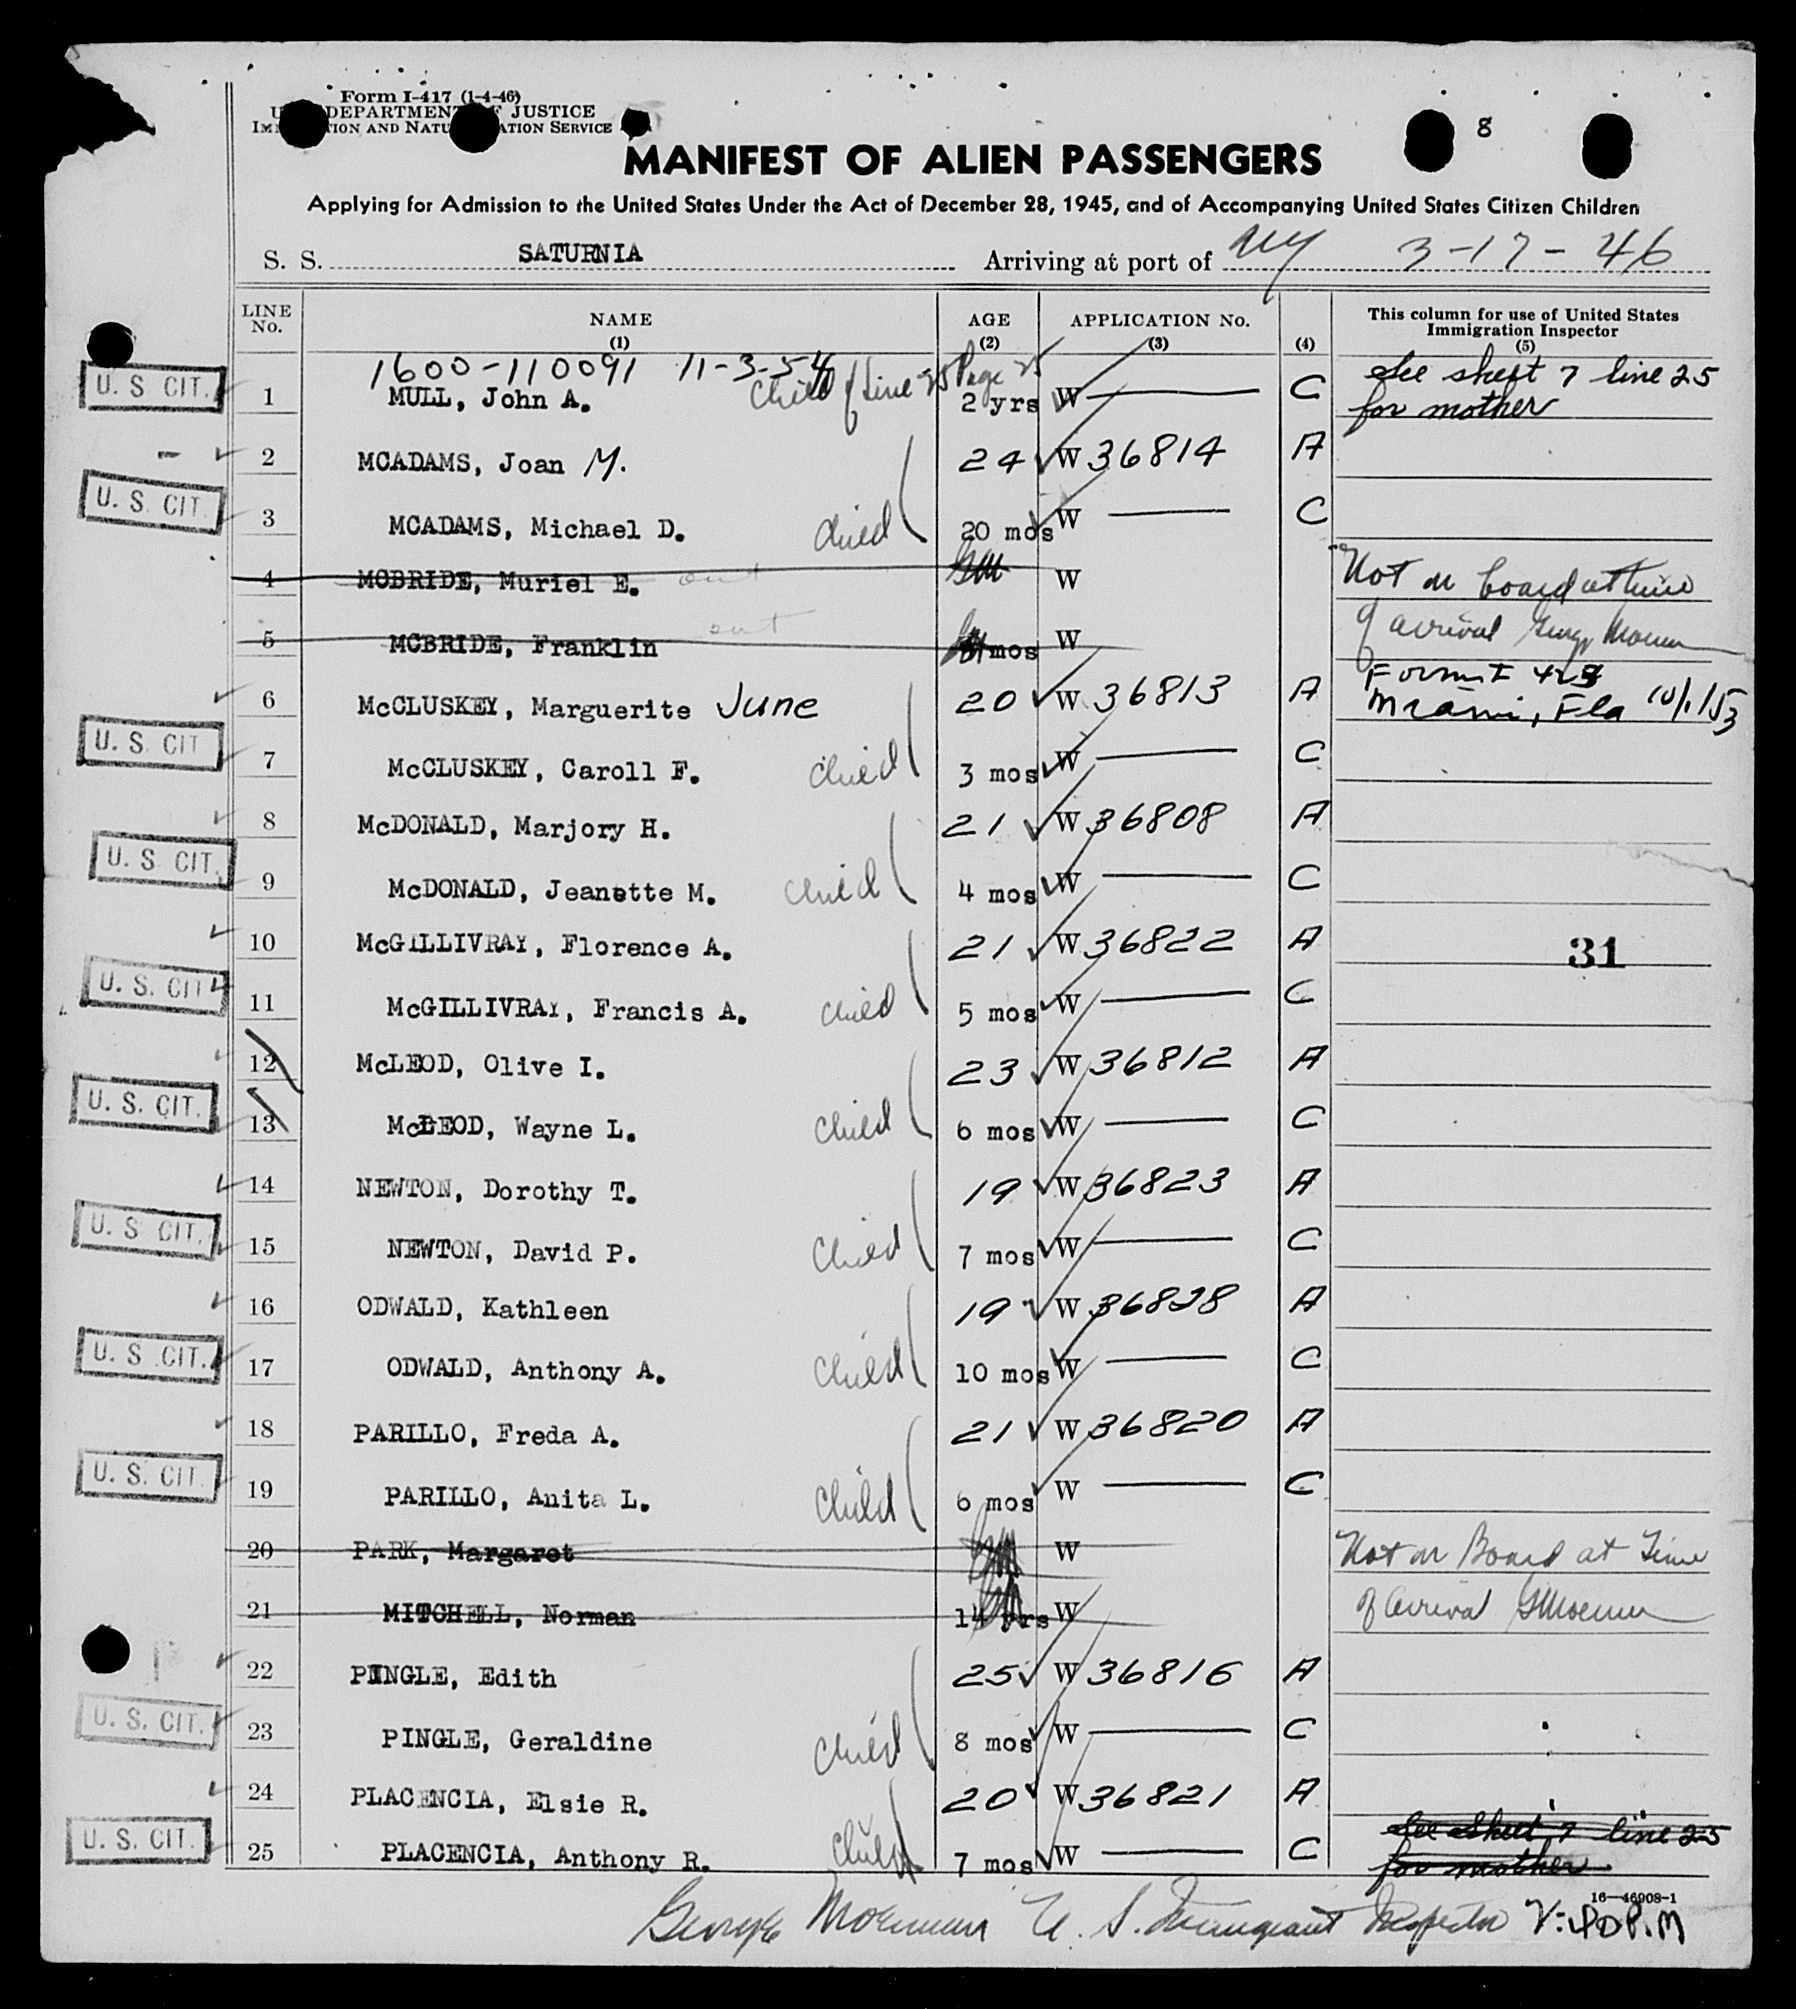 Form I-417 (1-4-46)
DEPARTMENT JUSTICE
AND SERVICE
8
MANIFEST OF ALIEN PASSENGERS
Applying for Admission to the United States Under the Act of December 28, 1945, and of Accompanying United States Citizen Children
S. S. SATURNIA Arriving at port of NY 3-17-46
LINE No. NAME (1) AGE (2) APPLICATION No. (3) (4) This column for use of United States Immigration Inspector (5)
1600-110091 11-3-54
U. S CIT. 1 MULL, John A. Child of Line 25 Page 2 yrs W — C See sheet 7 line 25 for mother
2 MCADAMS, Joan M. 24 W 36814 A
U. S. CIT. 3 MCADAMS, Michael D. child 20 mos W — C
4 MCBRIDE, Muriel E. out W Not on board at time
5 MCBRIDE, Franklin out mos W of arrival
6 McCLUSKEY, Marguerite June 20 W 36813 A Form I 429 Miami, Fla 10/1/53
U. S. CIT 7 McCLUSKEY, Caroll F. child 3 mos W — C
8 McDONALD, Marjory H. 21 W 36808 A
U. S CIT. 9 McDONALD, Jeanette M. child 4 mos W — C
10 McGILLIVRAY, Florence A. 21 W 36822 A 31
U. S. CIT 11 McGILLIVRAY, Francis A. child 5 mos W — C
12 McLEOD, Olive I. 23 W 36812 A
U. S. CIT. 13 McLEOD, Wayne L. child 6 mos W — C
14 NEWTON, Dorothy T. 19 W 36823 A
U. S CIT. 15 NEWTON, David P. child 7 mos W — C
16 ODWALD, Kathleen 19 W 36828 A
U. S. CIT. 17 ODWALD, Anthony A. child 10 mos W — C
18 PARILLO, Freda A. 21 W 36820 A
U. S. CIT. 19 PARILLO, Anita L. child 6 mos W — C
20 PARK, Margaret W Not on Board at Time
21 MITCHELL, Norman 14 yrs W of arrival
22 PINGLE, Edith 25 W 36816 A
U. S. CIT. 23 PINGLE, Geraldine child 8 mos W — C
24 PLACENCIA, Elsie R. 20 W 36821 A
U. S. CIT. 25 PLACENCIA, Anthony R. child 7 mos W — C See sheet 7 line 25 for mother
16—46908-1
George U. S. Immigrant Inspector :40 P.M